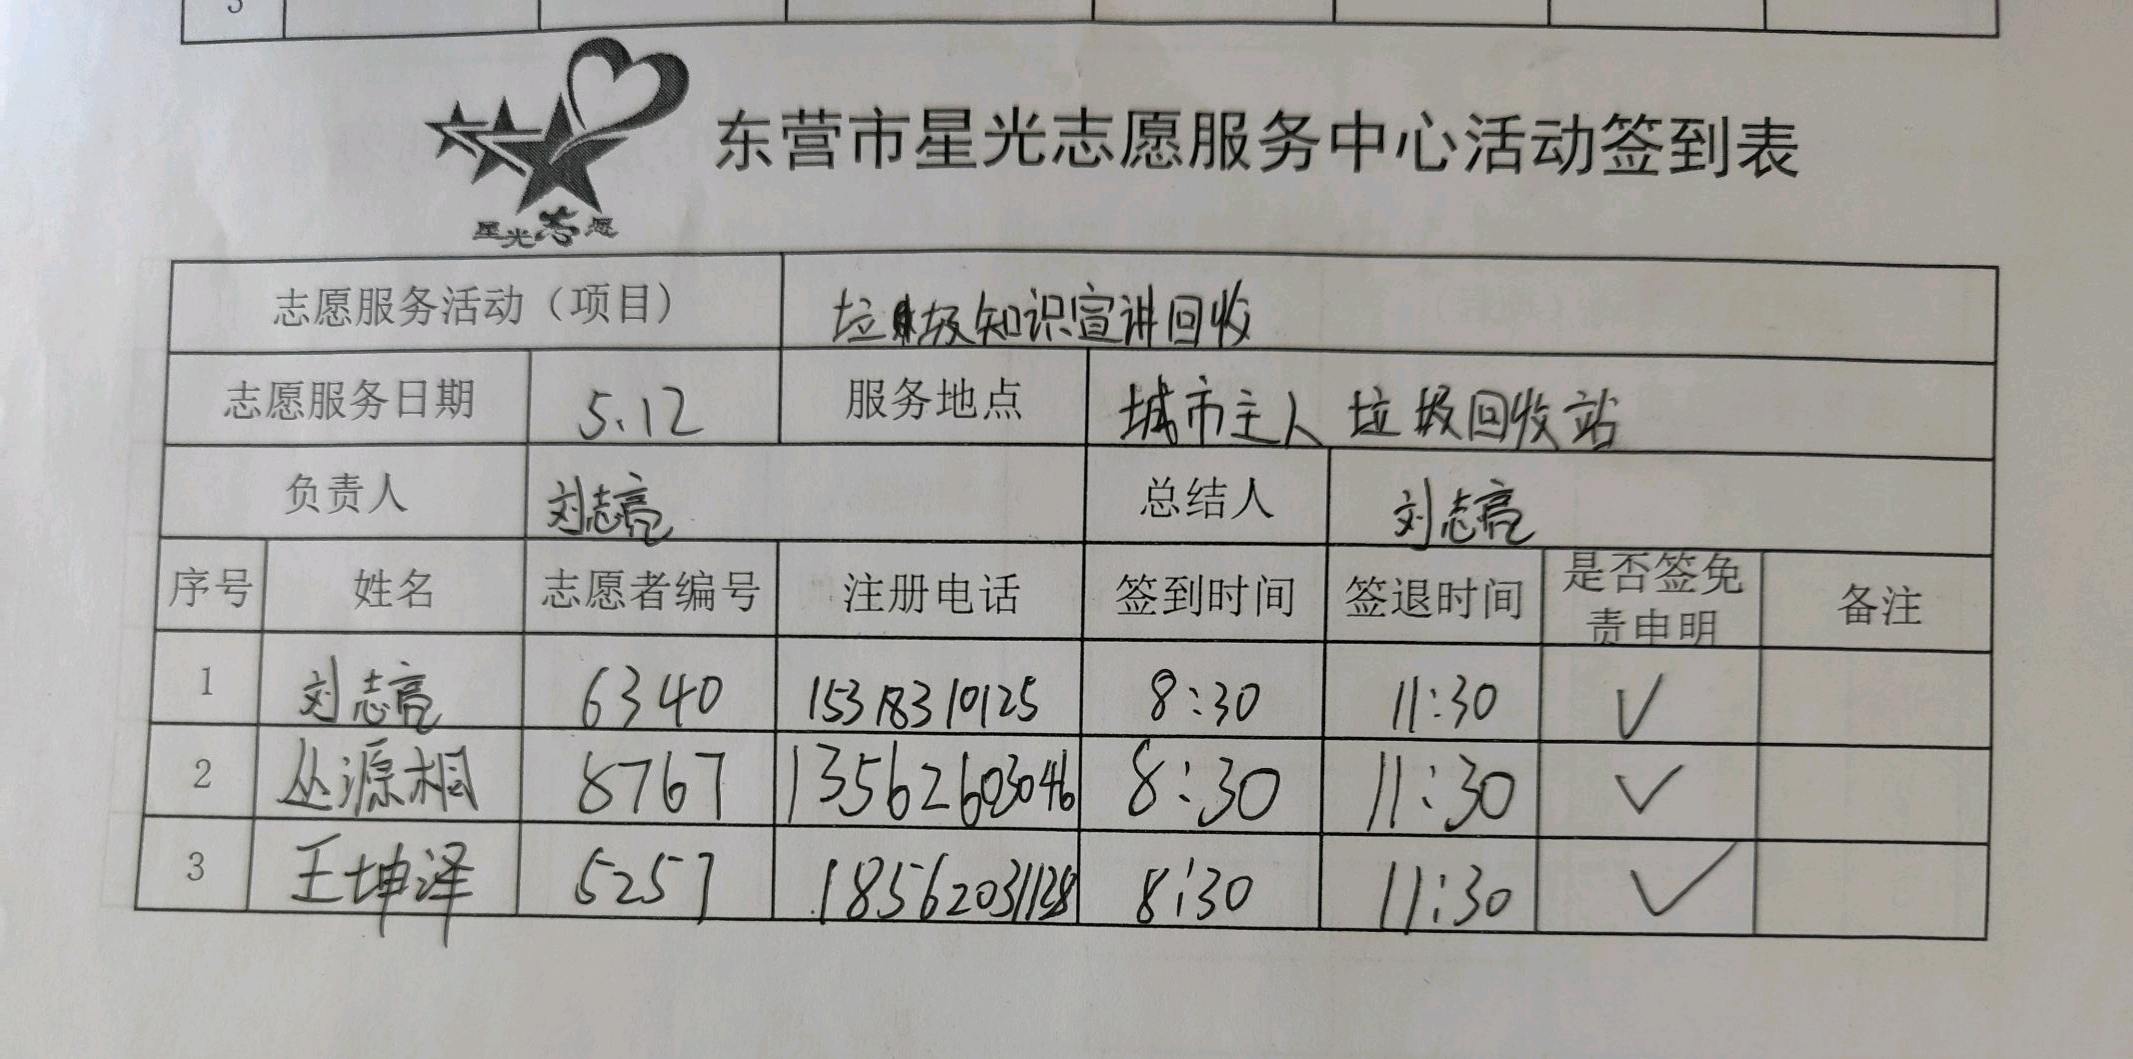 3
星光志愿
东营市星光志愿服务中心活动签到表
志愿服务活动（项目） 垃圾知识宣讲回收
志愿服务日期 5.12 服务地点 城市主人 垃圾回收站
负责人 刘志亮 总结人 刘志亮
序号 姓名 志愿者编号 注册电话 签到时间 签退时间 是否签免责申明 备注
1 刘志亮 6340 15318310125 8:30 11:30 ✓
2 丛源桐 8767 13562603046 8:30 11:30 ✓
3 王坤泽 5257 18562031128 8:30 11:30 ✓